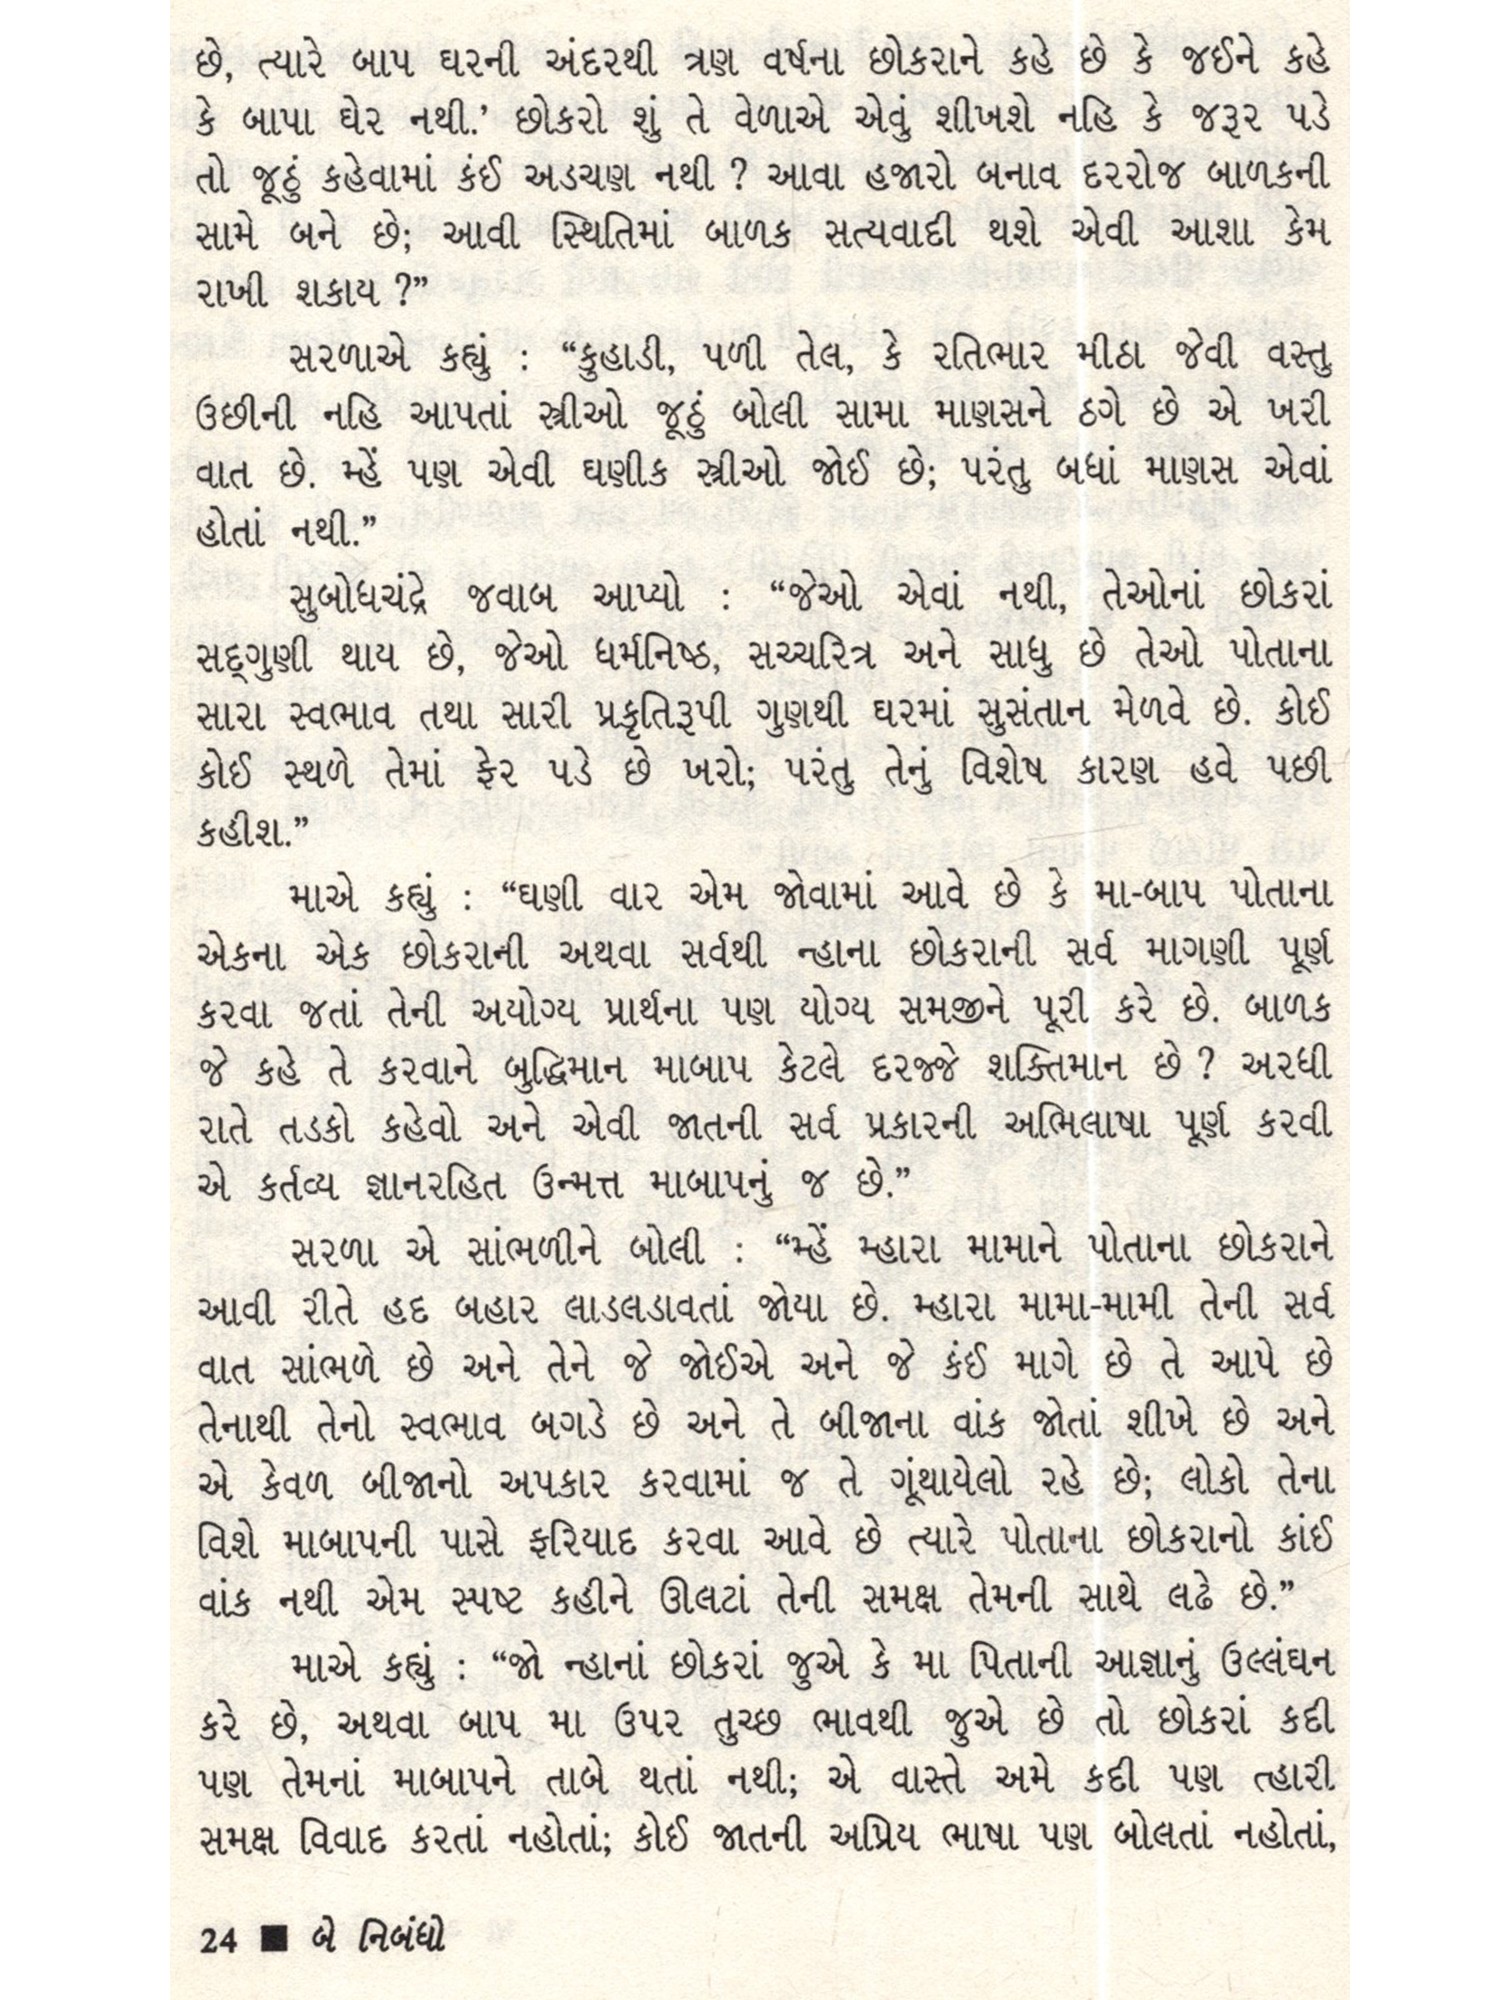 છે, ત્યારે બાપ ઘરની અંદરથી ત્રણ વર્ષના છોકરાને કહે છે કે જઈને કહે
કે બાપા ઘેર નથી.’ છોકરો શું તે વેળાએ એવું શીખશે નહિ કે જરૂર પડે
તો જૂઠું કહેવામાં કંઈ અડચણ નથી ? આવા હજારો બનાવ દરરોજ બાળકની
સામે બને છે; આવી સ્થિતિમાં બાળક સત્યવાદી થશે એવી આશા કેમ
રાખી શકાય ?”
સરળાએ કહ્યું : “કુહાડી, પળી તેલ, કે રતિભાર મીઠા જેવી વસ્તુ
ઉછીની નહિ આપતાં સ્ત્રીઓ જૂઠું બોલી સામા માણસને ઠગે છે એ ખરી
વાત છે. મ્હેં પણ એવી ઘણીક સ્ત્રીઓ જોઈ છે; પરંતુ બધાં માણસ એવાં
હોતાં નથી.”
સુબોધચંદ્રે જવાબ આપ્યો : “જેઓ એવાં નથી, તેઓનાં છોકરાં
સદ્‌ગુણી થાય છે, જેઓ ધર્મનિષ્ઠ, સચ્ચરિત્ર અને સાધુ છે તેઓ પોતાના
સારા સ્વભાવ તથા સારી પ્રકૃતિરૂપી ગુણથી ઘરમાં સુસંતાન મેળવે છે. કોઈ
કોઈ સ્થળે તેમાં ફેર પડે છે ખરો; પરંતુ તેનું વિશેષ કારણ હવે પછી
કહીશ.”
માએ કહ્યું : “ઘણી વાર એમ જોવામાં આવે છે કે મા-બાપ પોતાના
એકના એક છોકરાની અથવા સર્વથી ન્હાના છોકરાની સર્વ માગણી પૂર્ણ
કરવા જતાં તેની અયોગ્ય પ્રાર્થના પણ યોગ્ય સમજીને પૂરી કરે છે. બાળક
જે કહે તે કરવાને બુદ્ધિમાન માબાપ કેટલે દરજ્જે શક્તિમાન છે ? અરધી
રાતે તડકો કહેવો અને એવી જાતની સર્વ પ્રકારની અભિલાષા પૂર્ણ કરવી
એ કર્તવ્ય જ્ઞાનરહિત ઉન્મત્ત માબાપનું જ છે.”
સરળા એ સાંભળીને બોલી : “મ્હેં મ્હારા મામાને પોતાના છોકરાને
આવી રીતે હદ બહાર લાડલડાવતાં જોયા છે. મ્હારા મામા-મામી તેની સર્વ
વાત સાંભળે છે અને તેને જે જોઈએ અને જે કંઈ માગે છે તે આપે છે
તેનાથી તેનો સ્વભાવ બગડે છે અને તે બીજાના વાંક જોતાં શીખે છે અને
એ કેવળ બીજાનો અપકાર કરવામાં જ તે ગૂંથાયેલો રહે છે; લોકો તેના
વિશે માબાપની પાસે ફરિયાદ કરવા આવે છે ત્યારે પોતાના છોકરાનો કાંઈ
વાંક નથી એમ સ્પષ્ટ કહીને ઊલટાં તેની સમક્ષ તેમની સાથે લઢે છે.”
માએ કહ્યું : “જો ન્હાનાં છોકરાં જુએ કે મા પિતાની આજ્ઞાનું ઉલ્લંઘન
કરે છે, અથવા બાપ મા ઉપર તુચ્છ ભાવથી જુએ છે તો છોકરાં કદી
પણ તેમનાં માબાપને તાબે થતાં નથી; એ વાસ્તે અમે કદી પણ ત્હારી
સમક્ષ વિવાદ કરતાં નહોતાં; કોઈ જાતની અપ્રિય ભાષા પણ બોલતાં નહોતાં,
24 ■ બે નિબંધો